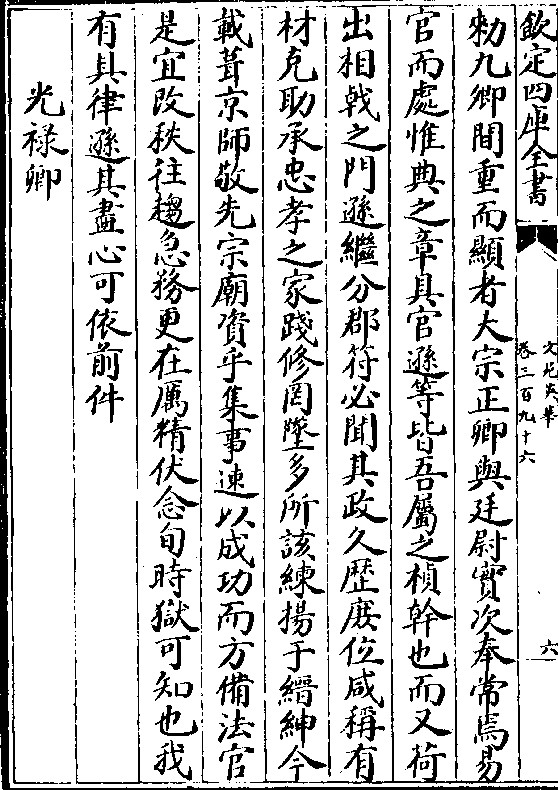 欽定四庫全書
文苑英華
卷三百九十六
六
勑九卿間重而顯者大宗正卿與廷尉實次奉常焉易
官而處惟典之章具官遜等皆吾屬之楨幹也而又荷
出相戟之門遜繼分郡符必聞其政久歴庻位咸稱有
材克助承忠孝之家踐修罔墜多所該練揚于縉紳今
載葺京師敬先宗廟資乎集事速以成功而方備法官
是宜改秩往趨急務更在厲精伏念旬時獄可知也我
有具律遜其盡心可依前件
光禄卿